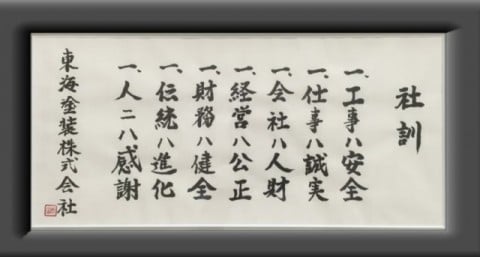 社訓
一、工事ハ安全
一、仕事ハ誠実
一、会社ハ人財
一、経営ハ公正
一、財務ハ健全
一、伝統ハ進化
一、人ニハ感謝
東海塗装株式会社